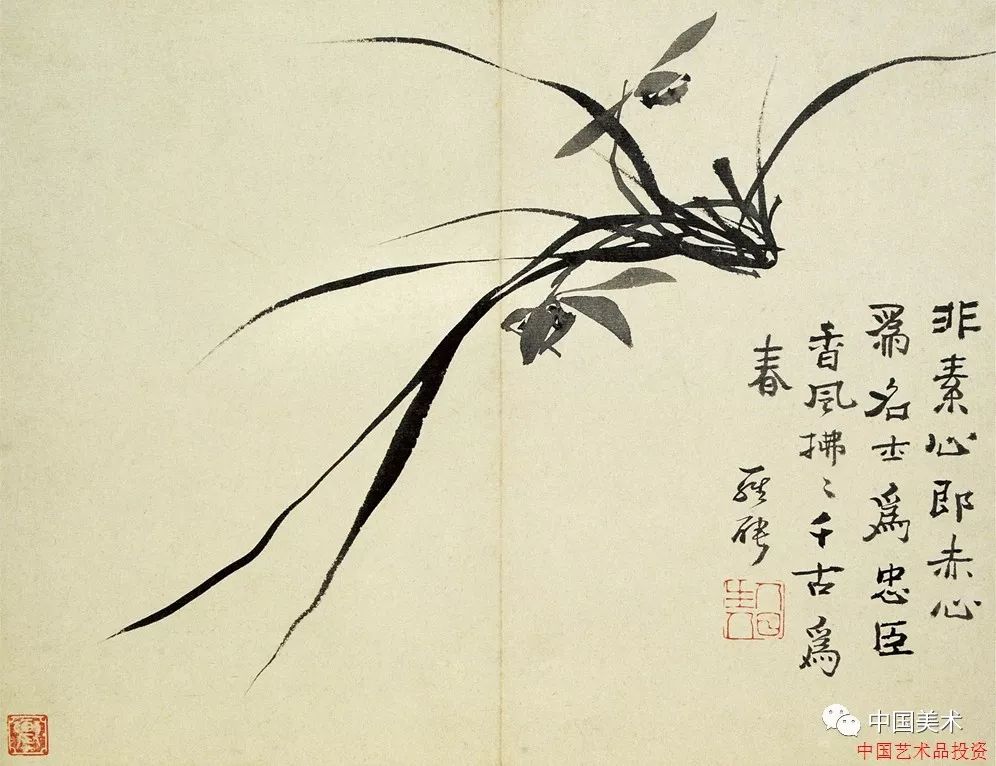 非素心即赤心
爲名士爲忠臣
香風拂〻千古爲
春
羅聘
中国美术
中国艺术品投资